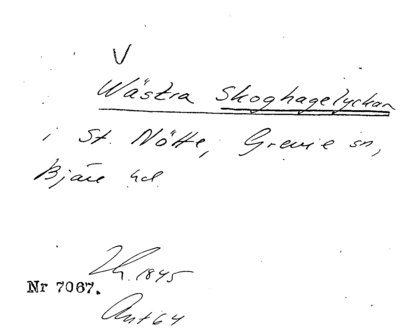 V
Wästra Skoghagelyckan
i St. Nötte, Grevie sn,
Bjäre hd
Lh. 1845
Nr 7067.
Ant 64